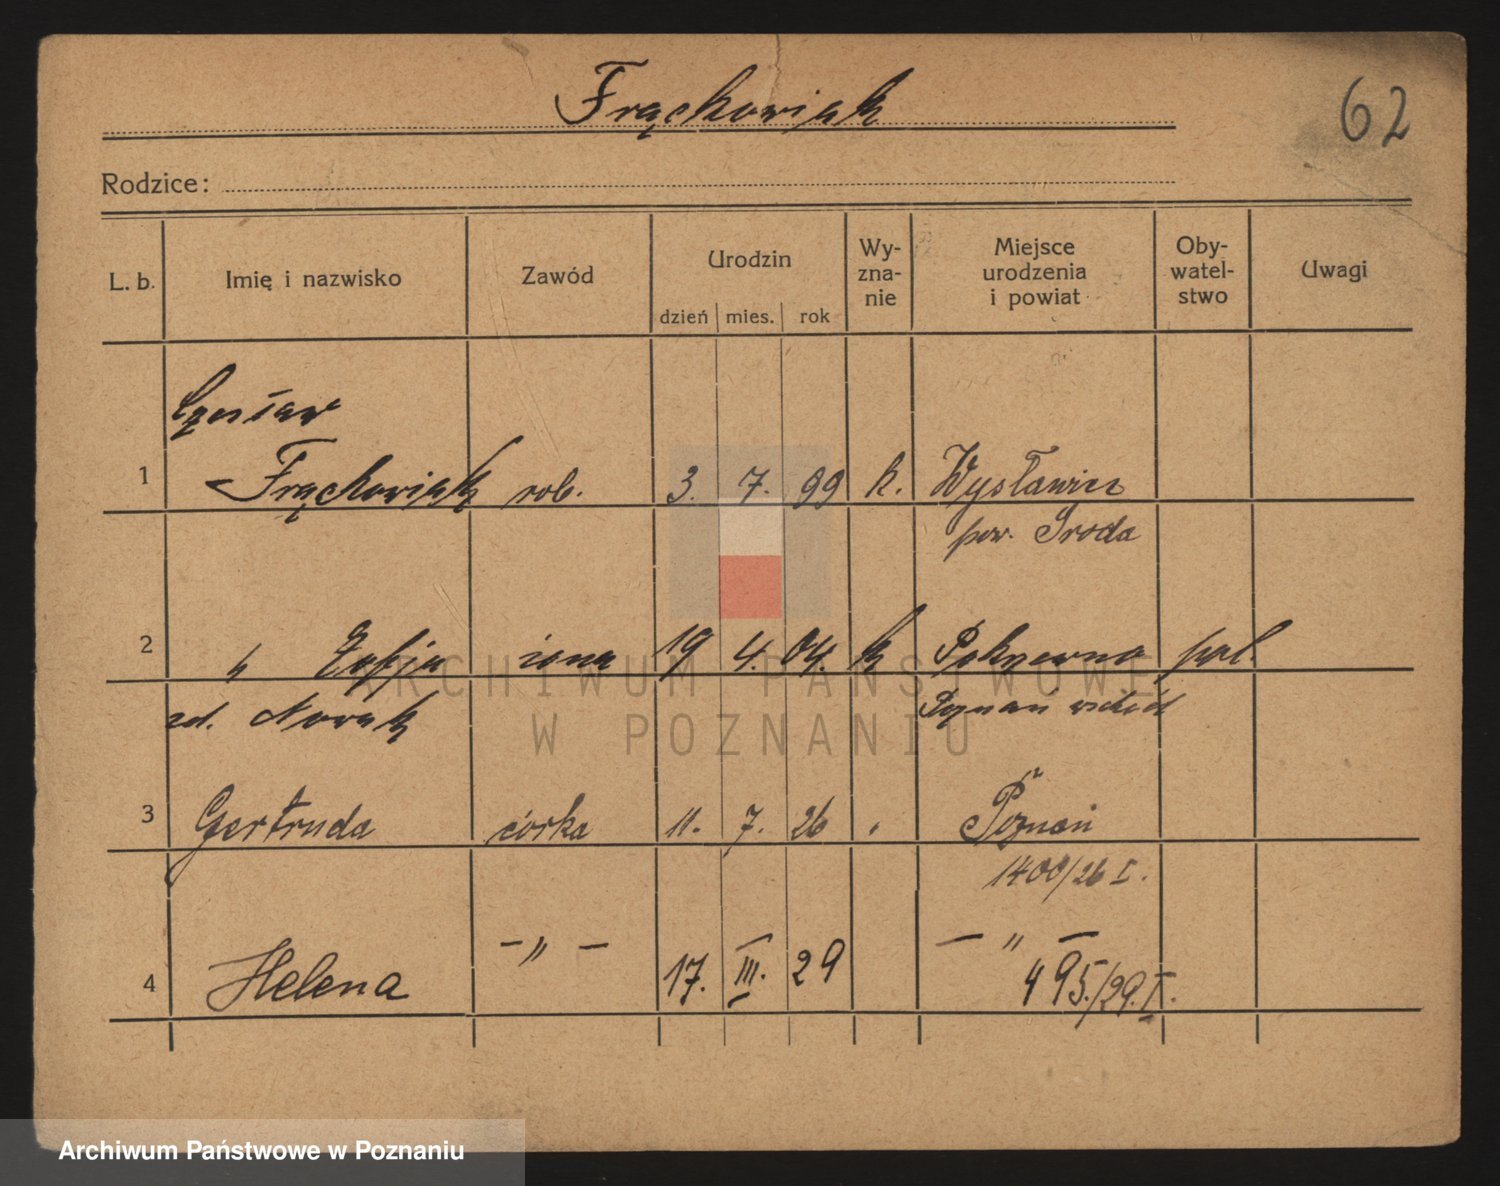 Frąckowiak
62
Rodzice:
L. b.
Imię i nazwisko
Zawód
Urodzin
dzień mies. rok
Wy-
zna-
nie
Miejsce
urodzenia
i powiat
Oby-
watel-
stwo
Uwagi
Czesław
1 Frąckowiak rob. 3. 7. 99 k. Wysławice
pow. Środa
2 " Zofja żona 19 4. 04. k Pokrzywno pol.
zd. Nowak Poznań wschód
3 Gertruda córka 11. 7. 26 " Poznań
1400/26 I.
4 Helena — " — 17. III. 29 — " —
495./29. I.
ARCHIWUM PAŃSTWOWE
W POZNANIU
Archiwum Państwowe w Poznaniu